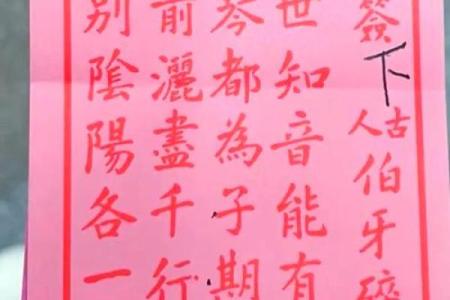 簽下古人伯牙碎
世知音能有
琴都為子期
前灑盡千行
別陰陽各一